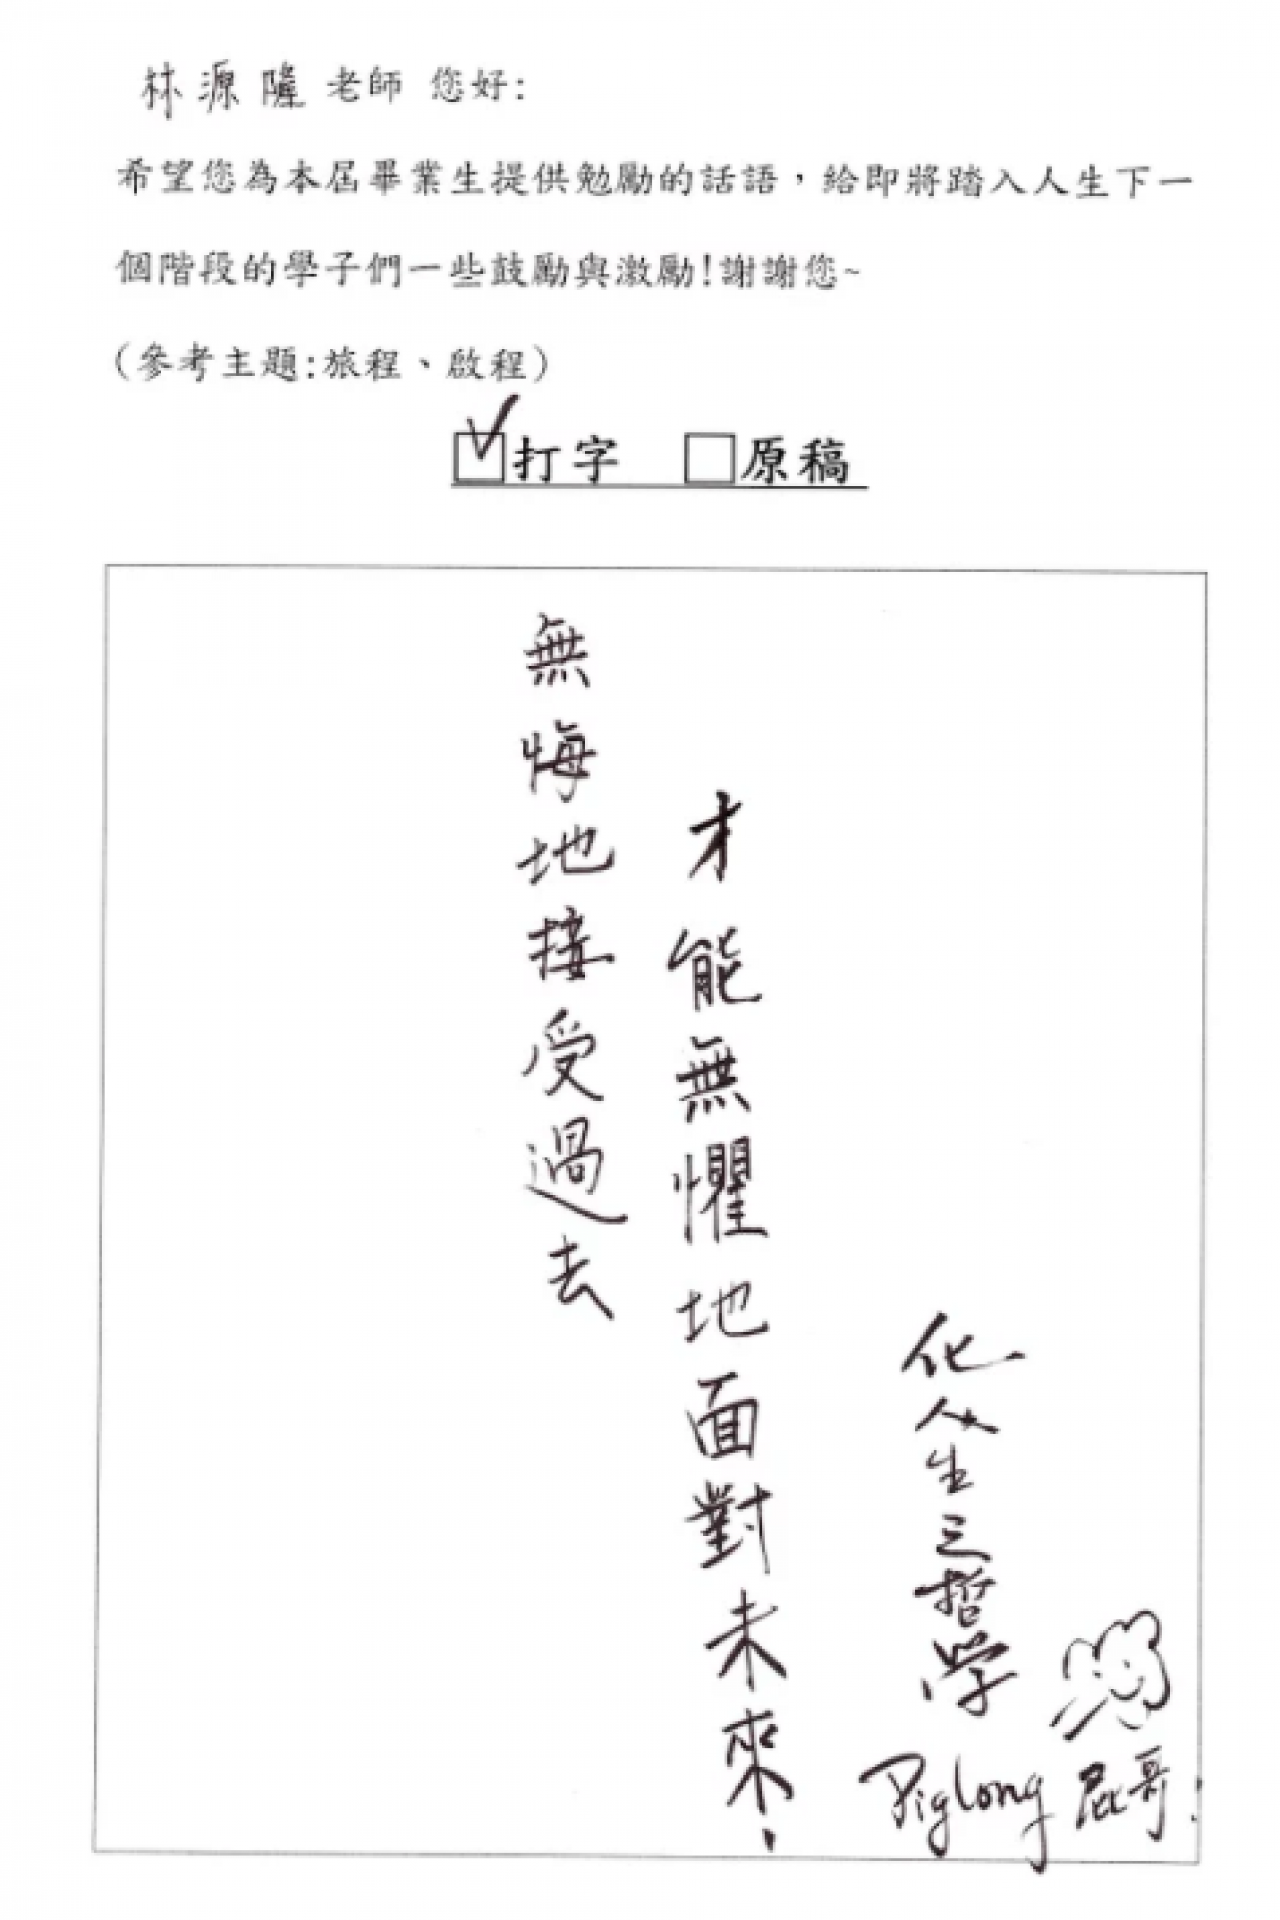 林源隆老師 您好:
希望您為本屆畢業生提供勉勵的話語，給即將踏入人生下一
個階段的學子們一些鼓勵與激勵!謝謝您~
(參考主題:旅程、啟程)
打字 原稿
無悔地接受過去
才能無懼地面對未來!
化人生之哲學
Piglong 屁哥!